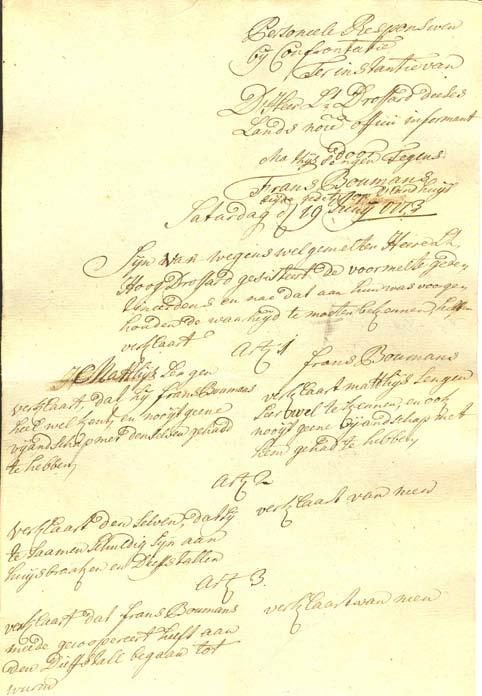 Personeele Responsiven
bij Confrontatie
Ter instantie van
D'Heer Lt Drossard deeses
Lands nom̄e officii informant
Mathijs door Tegens
Frans Boumans
Saturdag 19 Junij 1773
Sijn van wegens welgemelten Heere Lt
Hoof Drossard gesisteert de voormelte gede-
tineerdens en nae dat aan hun was voorge-
houden de waarheijd te moeten bekennen, hebben
verklaart
Art 1
Mathijs
verklaart, dat hij frans Boumans
heel wel kent, en nooijt geene
vijandschap met denselven gehad
te hebben,
frans Boumans
verklaart matthijs Sengen
seer wel te kennen, en ook
nooijt geene vijandschap met
hem gehad te hebben,
Art 2
verklaart den selven, dat sij
te saamen schuldig sijn aan
huijsbraaken en Diefstallen
verklaart van neen
Art 3
verklaart dat frans Boumans
mede gecopereert heeft aan
den Diefstall begaan tot
wurm
verklaart van neen